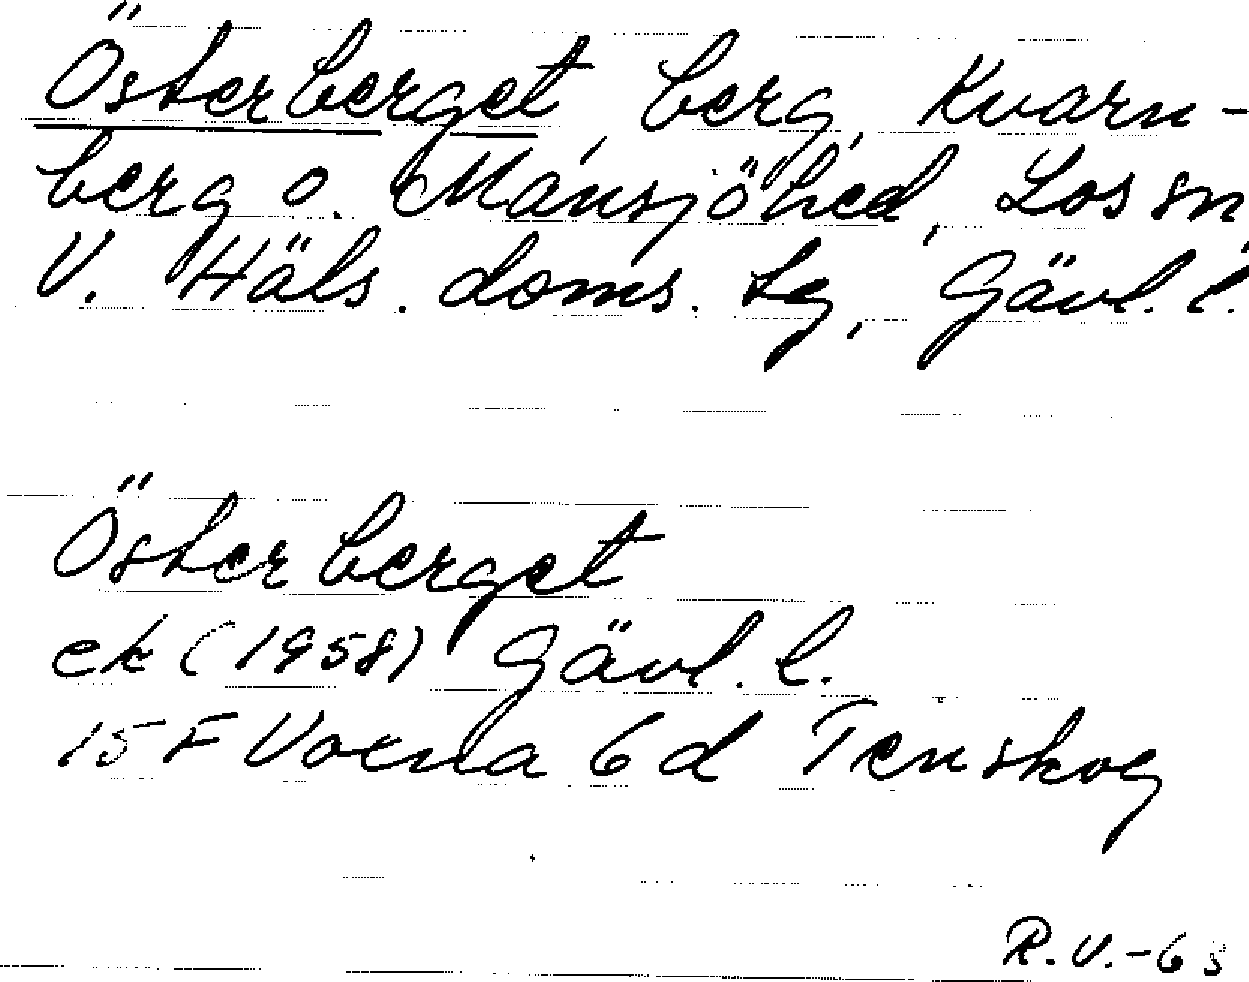 Österberget, berg, Kvarn-
berg o. Mansjöhed, Los sn,
V. Häls. doms. tg, Gävl. l.
Österberget
ek (1958) Gävl. l.
15 F Voxna 6 d Tenskog
R.V.-63